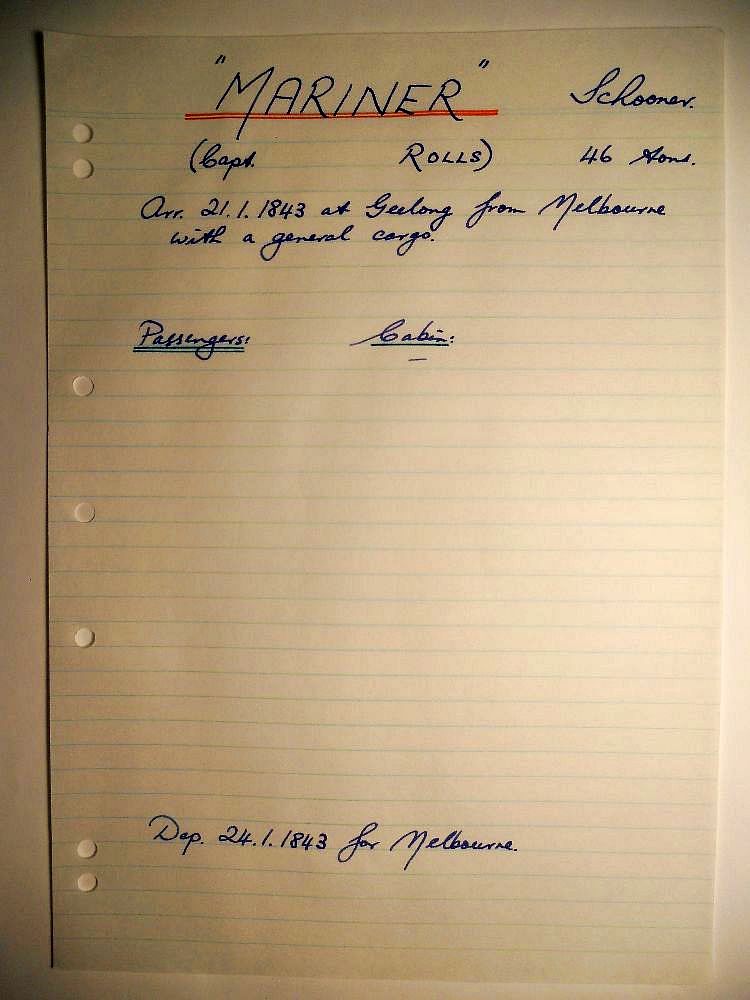 "MARINER" Schooner.
(Capt. ROLLS) 46 tons.
Arr. 21.1.1843 at Geelong from Melbourne
with a general cargo.
Passengers: Cabin:
—
Dep. 24.1.1843 for Melbourne.